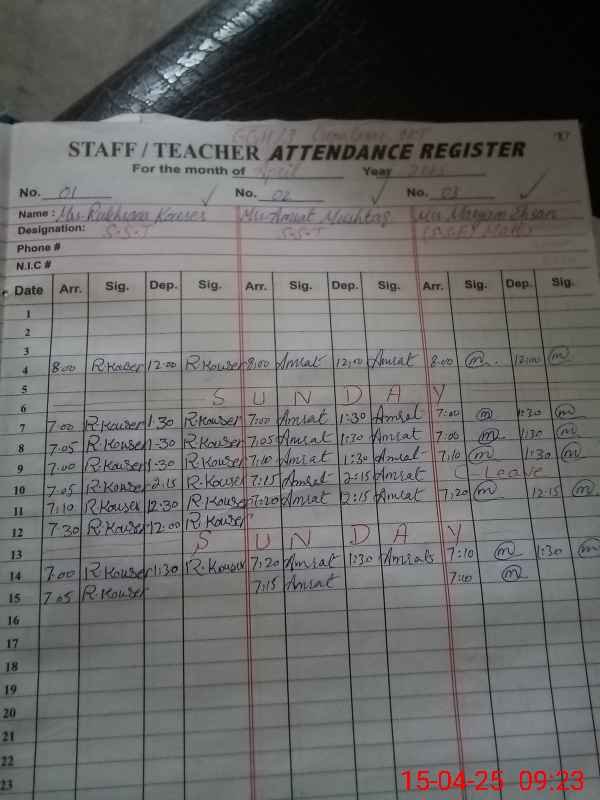 STAFF / TEACHER ATTENDANCE REGISTER
For the month of April Year
No. 01 No. 02 No. 03
Name : Mrs Rukhsana Kouser Mrs Amrat Mushtaq Mrs Maryam Ehsan
Designation: S.S.T S.S.T
Phone #
N.I.C #
Date Arr. Sig. Dep. Sig. Arr. Sig. Dep. Sig. Arr. Sig. Dep. Sig.
1
2
3
4 8:00 R.Kouser 12:00 R.Kouser 8:00 Amrat 12:00 Amrat 8:00 m 12:00 m
5
6 S U N D A Y
7 7:00 R.Kouser 1:30 R.Kouser 7:00 Amrat 1:30 Amrat 7:00 m 1:30 m
8 7:05 R.Kouser 1:30 R.Kouser 7:05 Amrat 1:30 Amrat 7:00 m 1:30 m
9 7:00 R.Kouser 1:30 R.Kouser 7:10 Amrat 1:30 Amrat 7:10 m 1:30 m
10 7:05 R.Kouser 2:15 R.Kouser 7:15 Amrat 2:15 Amrat C-Leave
11 7:10 R.Kouser 12:30 R.Kouser 7:20 Amrat 12:15 Amrat 7:20 m 12:15 m
12 7:30 R.Kouser 12:00 R.Kouser
13 S U N D A Y
14 7:00 R.Kouser 1:30 R.Kouser 7:20 Amrat 1:30 Amrat 7:10 m 1:30 m
15 7:05 R.Kouser 7:15 Amrat 7:10 m
16
17
18
19
20
21
22
23
15-04-25 09:23